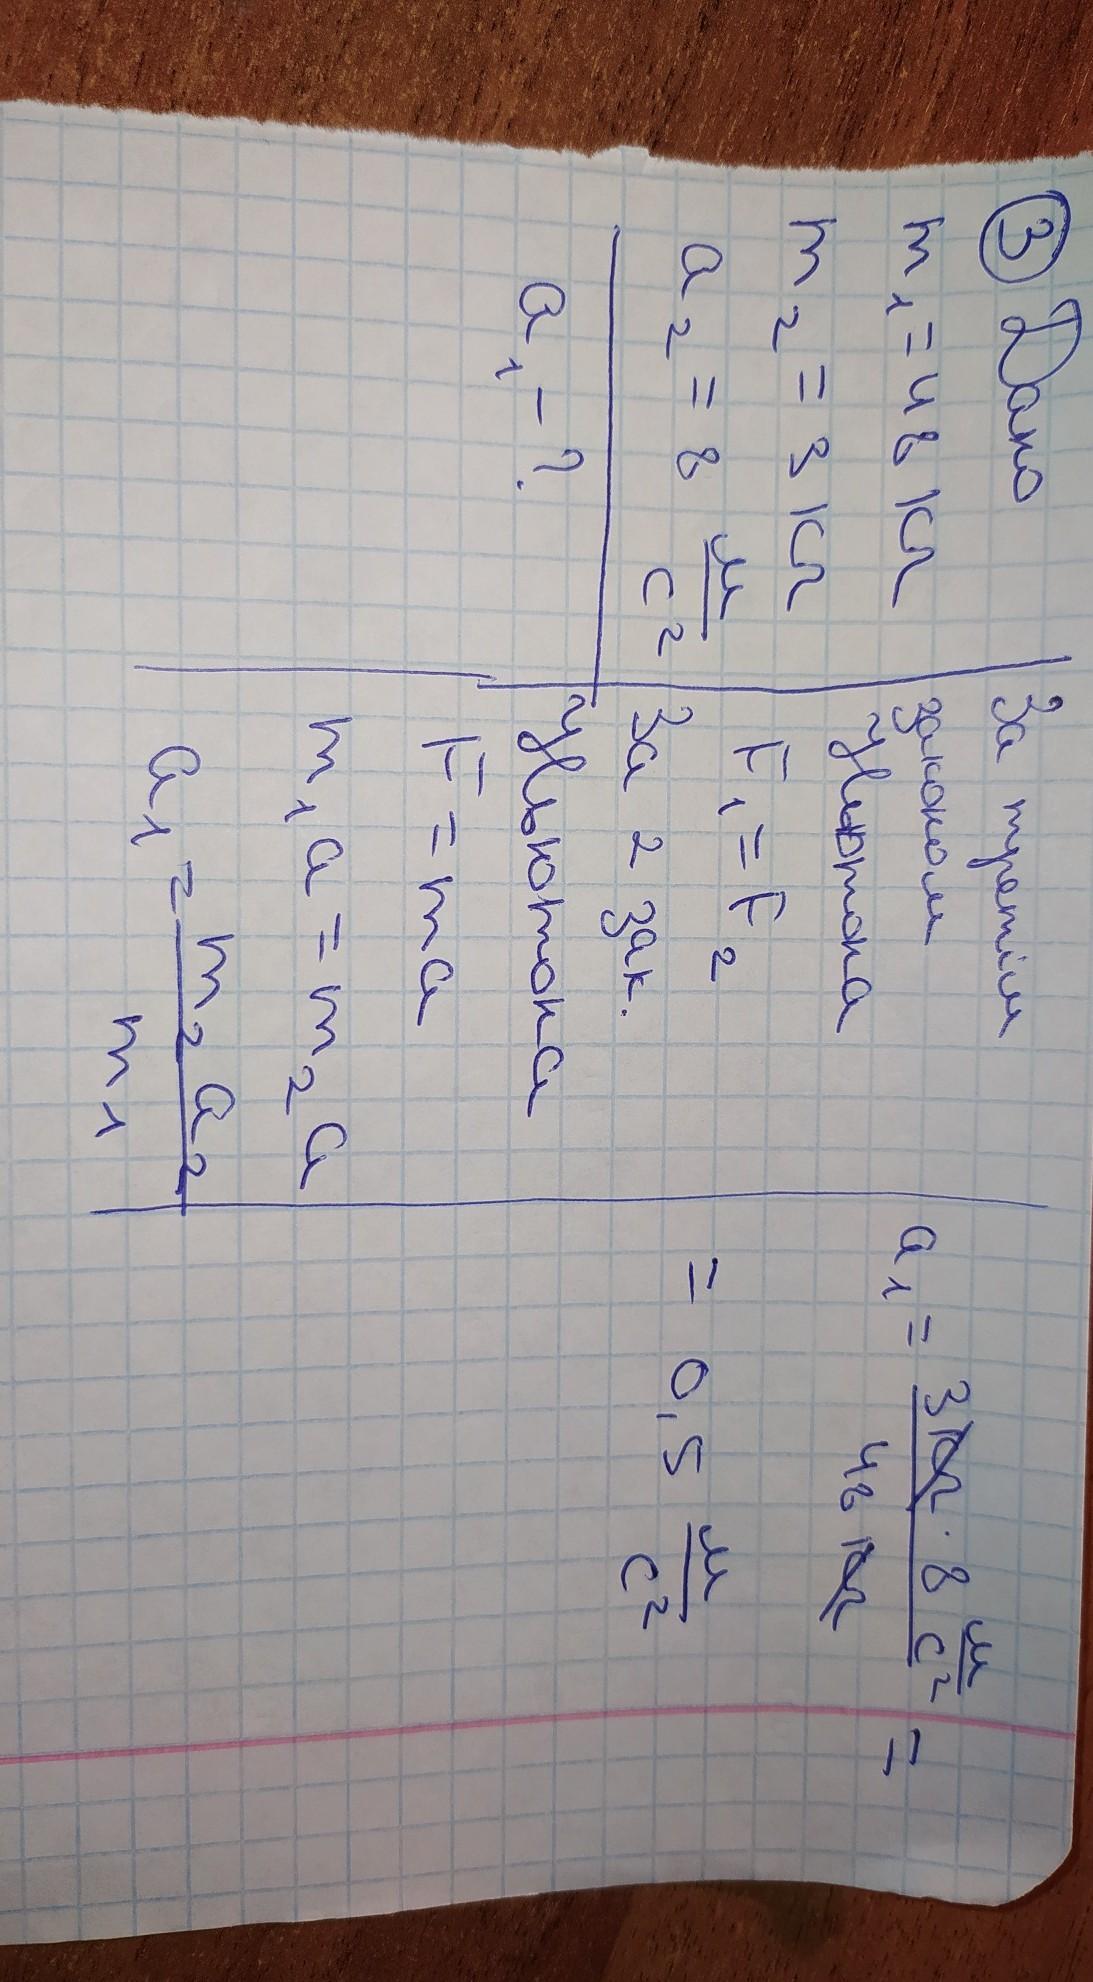 ③ Дано
m₁ = 48 кг
m₂ = 3 кг
a₂ = 8 м/с²
a₁ - ?
За третім
законом
Ньютона
F₁ = F₂
За 2 зак.
Ньютона
F = ma
m₁a = m₂a
a₁ = m₂a₂/m₁
a₁ = 3кг · 8 м/с² / 48 кг =
= 0,5 м/с²